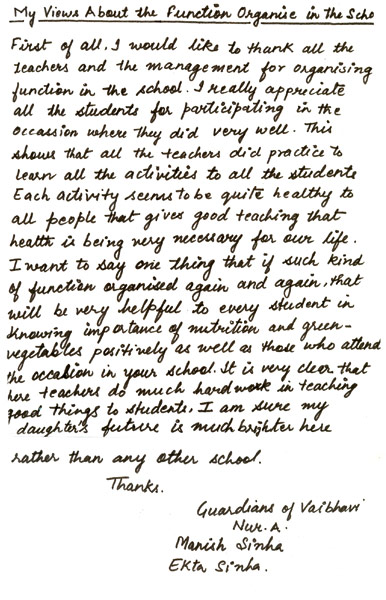 My Views About the Function Organise in the Scho
First of all, I would like to thank all the
teachers and the management for organising
function in the school. I really appreciate
all the students for participating in the
occassion where they did very well. This
shows that all the teachers did practice to
learn all the activities to all the students
Each activity seems to be quite healthy to
all people that gives good teaching that
health is being very necessary for our life.
I want to say one thing that if such kind
of function organised again and again, that
will be very helpful to every student in
knowing importance of nutrition and green-
vegetables positively as well as those who attend
the occasion in your school. It is very clear that
here teachers do much hard work in teaching
good things to students. I am sure my
daughter's future is much brighter here
rather than any other school.
Thanks.
Guardians of Vaibhavi
Nur. A.
Manish Sinha
Ekta Sinha.